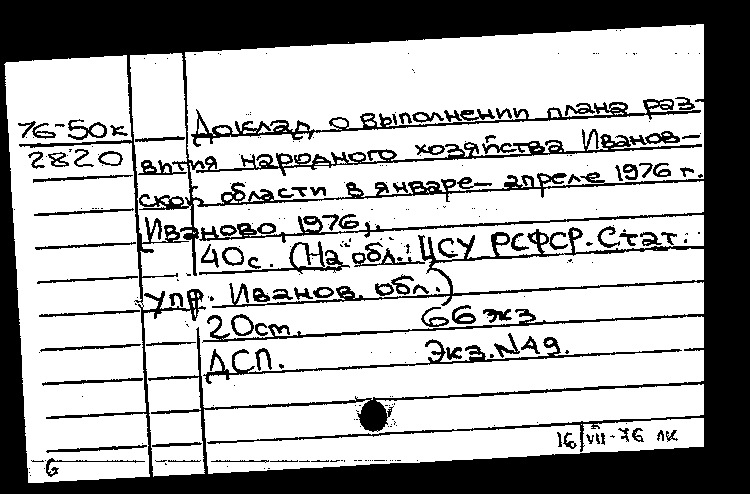 76-50к
2820
Доклад о выполнении плана раз-
вития народного хозяйства Иванов-
ской области в январе- апреле 1976 г.
[Иваново, 1976,.
40с. (На обл.: ЦСУ РСФСР. Стат.
упр. Иванов. обл.)
20ст. 66 экз.
ДСП. Экз.N49.
16/VII-76 лк
G